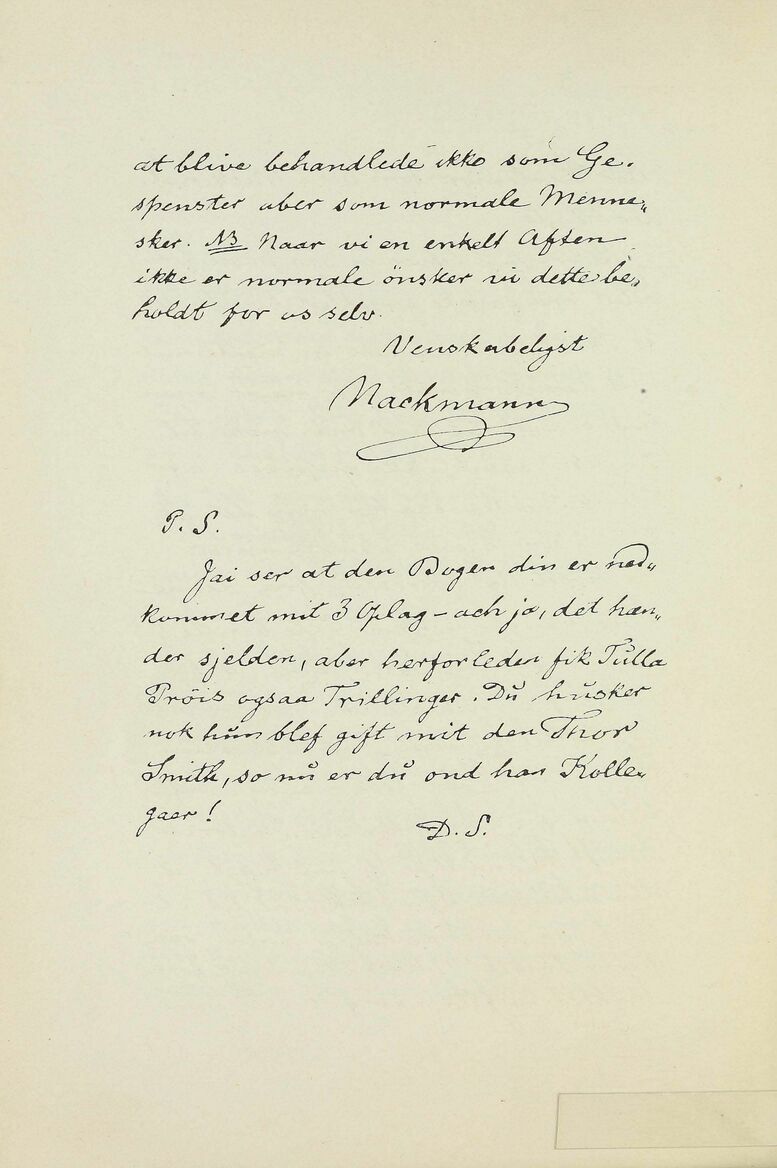 at blive behandlede ikke som Ge-
spenster aber som normale Menne-
sker. NB Naar vi en enkelt Aften
ikke er normale önsker vi dette be-
holdt for os selv.
Venskabeligst
Nackmann
P. S.
Jai ser at den Bogen din er ned-
kommet mit 3 Oplag – ach ja, det hæn-
der sjelden, aber herforleden fik Tulla
Pröis ogsaa Trillinger. Du husker
nok hun blef gift mit den Thor
Smith, so nu er du ond han Kolle-
gaer!
D. S.